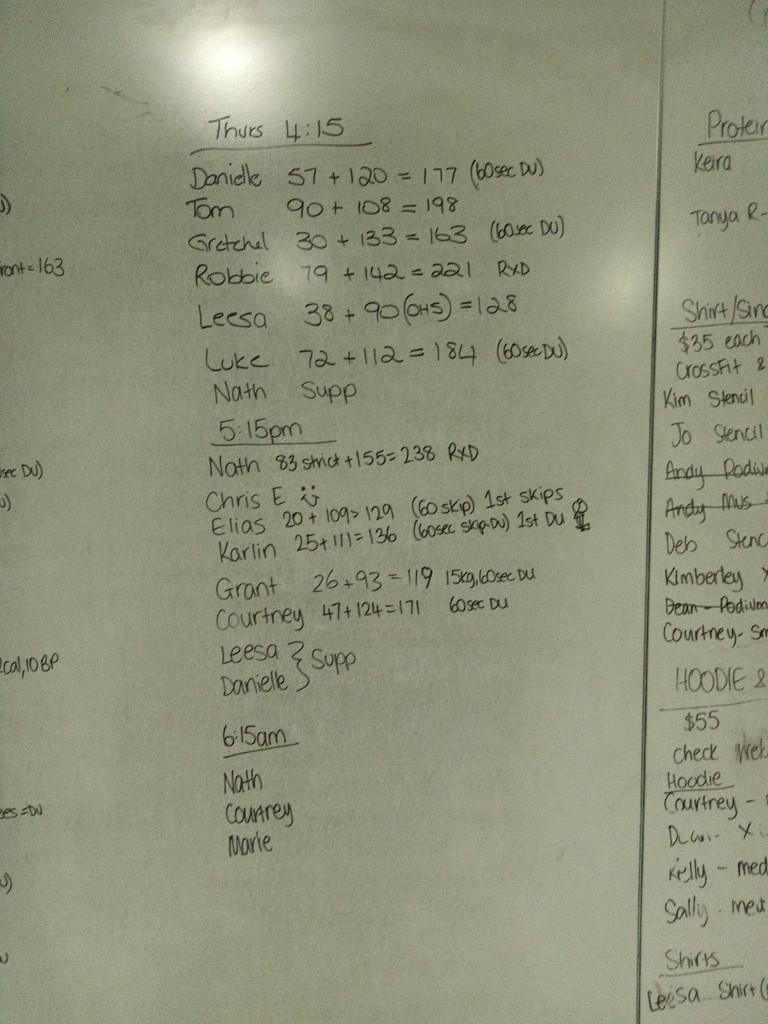 ront=163
sec DU)
cal, 10 BP
ees = DU
Thurs 4:15
Danielle 57 + 120 = 177 (60sec DU)
Tom 90 + 108 = 198
Gretchel 30 + 133 = 163 (60sec DU)
Robbie 79 + 142 = 221 RXD
Leesa 38 + 90(OHS) = 128
Luke 72 + 112 = 184 (60sec DU)
Nath Supp
5:15pm
Nath 83 strict + 155= 238 RXD
Chris E
Elias 20 + 109= 129 (60 skip) 1st skips
Karlin 25+111=136 (60sec skip-DU) 1st DU
Grant 26+93=119 15kg,60sec DU
Courtney 47+124=171 60sec DU
Leesa } Supp
Danielle
6:15am
Nath
Courtney
Marie
Protein
Keira
Tanya R-
Shirt/Sing
$35 each
CrossFit &
Kim Stencil
Jo Stencil
Andy Podium
Andy Mus
Deb Stenc
Kimberley X
Dean - Podium
Courtney- Sm
HOODIE &
$55
Check Web
Hoodie
Courtney -
Kielly - med
Sally - med
Shirts
Leesa Shirt (